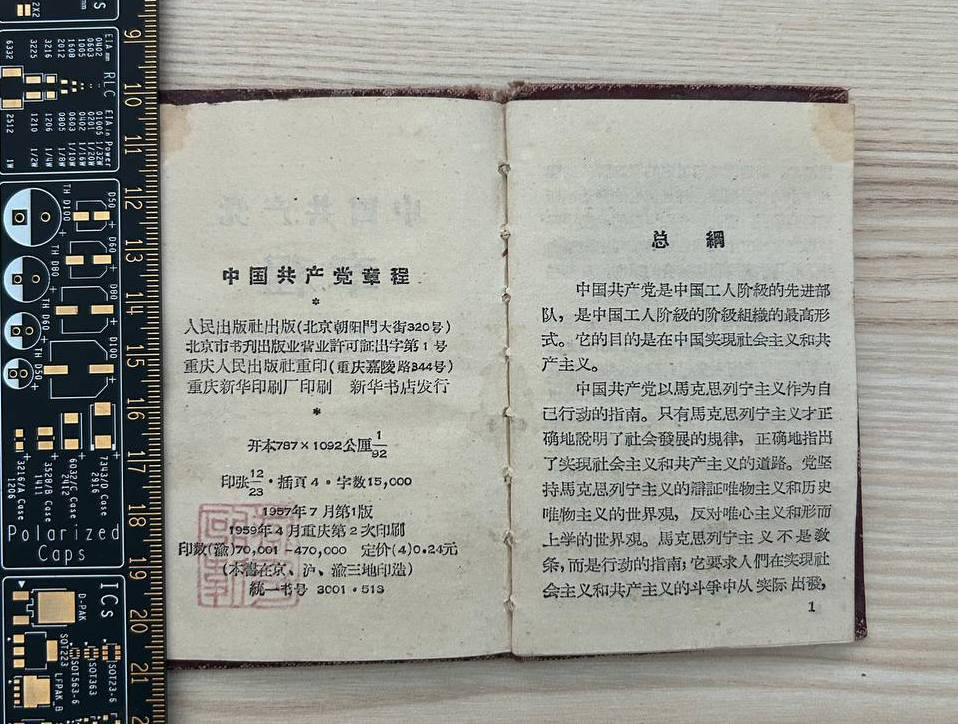 中国共产党章程
*
人民出版社出版(北京朝阳門大街320号)
北京市书刊出版业营业許可証出字第1号
重庆人民出版社重印(重庆嘉陵路344号)
重庆新华印刷厂印刷 新华书店发行
*
开本787×1092公厘 1/92
印张 12/23·插頁4·字数15,000
1957年7月第1版
1959年4月重庆第2次印刷
印数(渝)70,001-470,000 定价(4)0.24元
(本書在京、沪、渝三地印造)
統一书号 3001·513
总 綱
中国共产党是中国工人阶級的先进部
队，是中国工人阶級的阶級組織的最高形
式。它的目的是在中国实现社会主义和共
产主义。
中国共产党以馬克思列宁主义作为自
己行动的指南。只有馬克思列宁主义才正
确地說明了社会發展的規律，正确地指出
了实現社会主义和共产主义的道路。党坚
持馬克思列宁主义的辯証唯物主义和历史
唯物主义的世界观，反对唯心主义和形而
上学的世界观。馬克思列宁主义不是教
条，而是行动的指南；它要求人們在实現社
会主义和共产主义的斗爭中从实际出發，
1
9
10
11
12
13
14
15
16
17
18
19
20
21
2X2
EIA mm
0402
0603
1005
1608
2012
3216
3225
6332
RLC
EIA in Power
01005 1/32W
0201 1/20W
0402 1/16W
0603 1/10W
0805 1/8W
1206 1/4W
1210 1/2W
2512 1W
TH D100
D50
D60
TH D80
D80
TH D60
D100
TH D50
7343/D Case
2916
6032/C Case
2412
3528/B Case
1411
3216/A Case
1206
Polarized
Caps
ICs
D-PAK
SOT223
SOT563-6
SOT363
SOT23-6
LFPAK